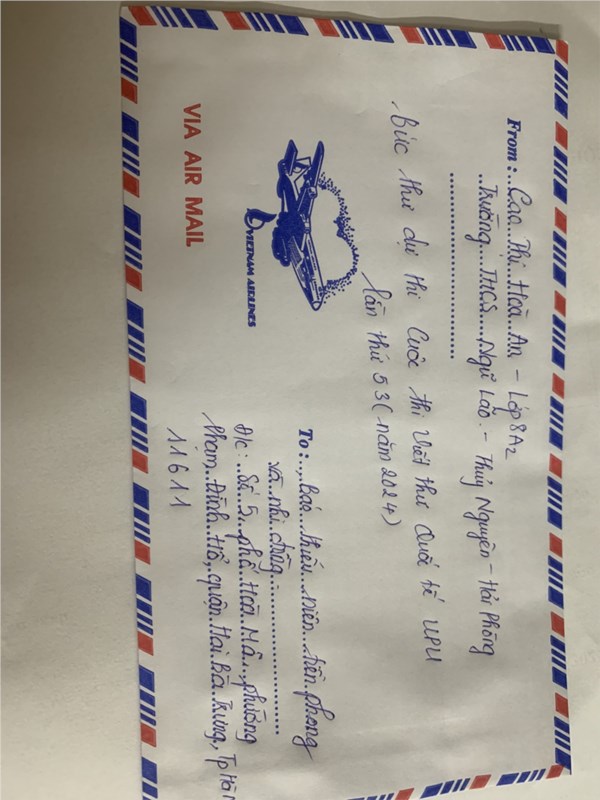 From: Cao Thị Hoà An - Lớp 8A2
Trường THCS Ngũ Lão - Thủy Nguyên - Hải Phòng
Bức thư dự thi Cuộc thi Viết thư Quốc tế UPU
lần thứ 53 (năm 2024)
VIETNAM AIRLINES
VIA AIR MAIL
To: Báo thiếu niên tiền phong
và nhi đồng
Đ/c: Số 5 phố Hoà Mã, phường
Phạm Đình Hổ, quận Hai Bà Trưng, Tp Hà N
11611